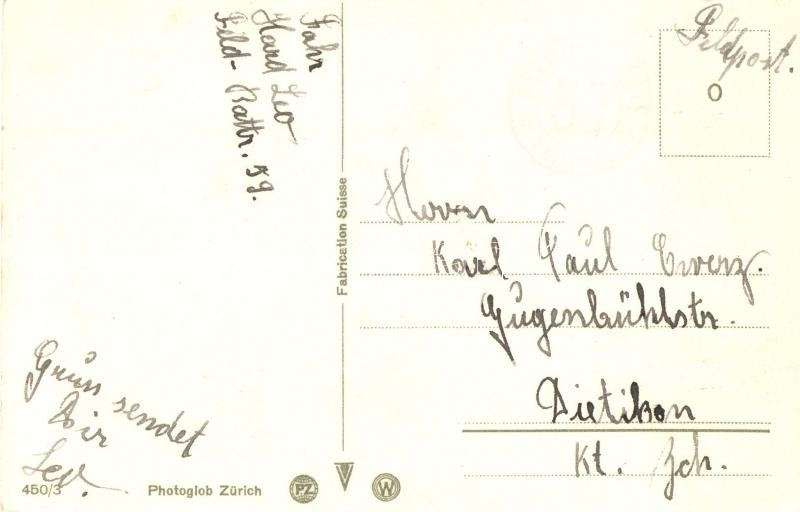 Fahr
Hard Leo
Feld-Battr. 59.
Feldpost.
Herrn
Karl Paul
Gugenbühlstr.
Dietikon
Kt. Zch.
Gruss sendet
Dir
Leo.
Fabrication Suisse
450/3
Photoglob Zürich
PZ
W